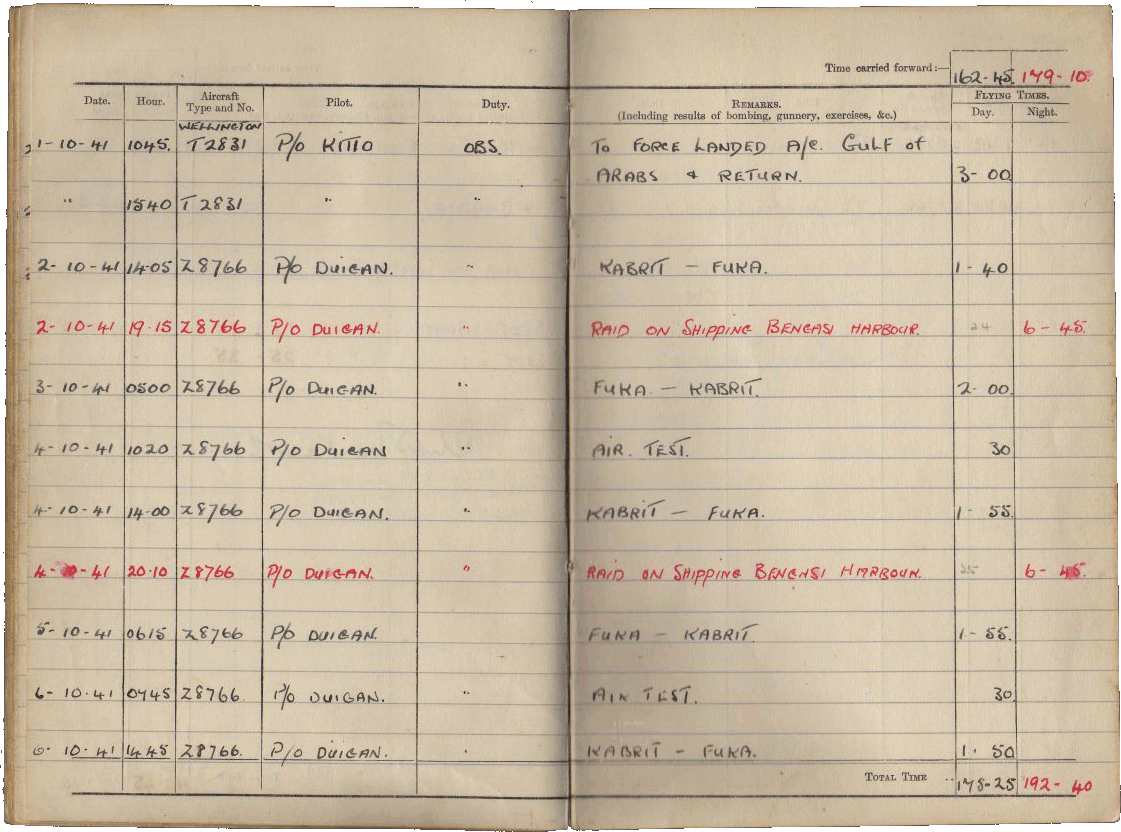 Time carried forward:— 162-45. 179-10.
Date. Hour. Aircraft Type and No. Pilot. Duty. REMARKS. (Including results of bombing, gunnery, exercises, &c.) FLYING TIMES. Day. Night.
WELLINGTON
1-10-41 1045. T2831 P/O KITTO OBS. TO FORCE LANDED A/C. GULF of
ARABS & RETURN. 3-00
" 1540 T2831 " "
2-10-41 14-05 Z8766 P/O DUIGAN. " KABRIT – FUKA. 1-40
2-10-41 19.15 Z8766 P/O DUIGAN. " RAID ON SHIPPING BENGASI HARBOUR. 24 6-45.
3-10-41 0500 Z8766 P/O DUIGAN. " FUKA – KABRIT. 2-00.
4-10-41 1020 Z8766 P/O DUIGAN " AIR. TEST. 30
4-10-41 14-00 Z8766 P/O DUIGAN. " KABRIT – FUKA. 1-55.
4-10-41 20.10 Z8766 P/O DUIGAN. " RAID ON SHIPPING BENGASI HARBOUR. 25 6-45.
5-10-41 0615 Z8766 P/O DUIGAN. " FUKA – KABRIT. 1-55.
6-10-41 0745 Z8766 P/O DUIGAN. " AIR TEST. 30
6-10-41 1445 Z8766. P/O DUIGAN. " KABRIT – FUKA. 1.50
TOTAL TIME .. 175-25 192-40